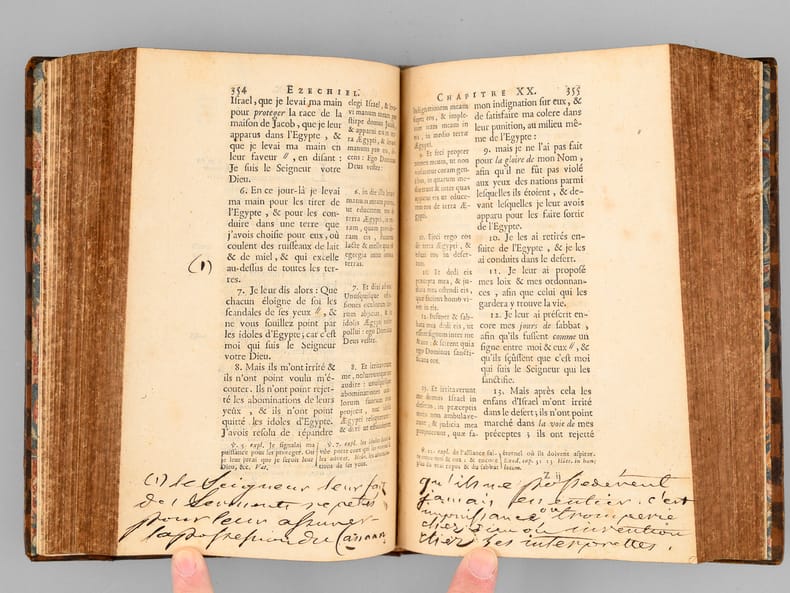 354 EZECHIEL.
Israel, que je levai ma main
pour proteger la race de la
maison de Jacob, que je leur
apparus dans l'Egypte, &
que je levai ma main en
leur faveur //, en disant :
Je suis le Seigneur votre
Dieu.
6. En ce jour-là je levai
ma main pour les tirer de
l'Egypte, & pour les con-
duire dans une terre que
j'avois choisie pour eux, où
coulent des ruisseaux de lait
& de miel, & qui excelle
au-dessus de toutes les ter-
res.
7. Je leur dis alors : Que
chacun éloigne de soi les
scandales de ses yeux //, &
ne vous souillez point par
les idoles d'Egypte; car c'est
moi qui suis le Seigneur
votre Dieu.
8. Mais ils m'ont irrité &
ils n'ont point voulu m'é-
couter. Ils n'ont point rejet-
té les abominations de leurs
yeux, & ils n'ont point
quitté les idoles d'Egypte.
J'avois resolu de répandre
elegi Israel, &
vi manum meam
stirpe domus Jacob,
& apparui eis in
ra Ægypti, &
manum pro eis,
cens : Ego Dominus
Deus vester.
6. in die illa
manum meam
ut educerem
terra Ægypti, in
ram, quam
ram eis,
lacte & melle
egregia inter omnes
terras.
7. Et dixi ad eos :
Unusquisque
siones oculorum
rum abjiciat, & in
idolis Ægypti
pollui : ego Dominus
Deus vester.
8. Et irritaverunt
me, nolueruntque me
audire : unusquisque
abominationes
lorum suorum non
projecit, nec idola
Ægypti reliquerunt :
& dixi ut effunderem
(1)
℣. 5. expl. Je signalai ma
puissance pour les proteger. Ou
je leur jurai que je serois leur
Dieu, &c. Vat.
℣. 7. expl. les idoles
(1) le Seigneur leur fait
des Serments repetés
pour leur assurer
la possession du Canaan
CHAPITRE XX. 355
indignationem meam
super eos, & imple-
rem iram meam in
eis, in medio terræ
Ægypti.
9. Et feci propter
nomen meum, ut non
violaretur coram gen-
tibus, in quarum me-
dio erant, & inter quas
apparui eis ut educe-
rem eos de terra Æ-
gypti.
10. Ejeci ergo eos
de terra Ægypti, &
eduxi in desertum.
11. Et dedi eis
præcepta mea, & ju-
dicia mea ostendi eis,
quæ faciens homo vi-
vet in eis.
12. Insuper & sab-
bata mea dedi eis, ut
essent signum inter me
& eos : & scirent quia
ego Dominus sanctifi-
cans eos.
13. Et irritaverunt
me domus Israel in
deserto, in præceptis
meis non ambulave-
runt, & judicia mea
projecerunt, quæ fa-
mon indignation sur eux, &
de satisfaire ma colere dans
leur punition, au milieu mê-
me de l'Egypte :
9. mais je ne l'ai pas fait
pour la gloire de mon Nom,
afin qu'il ne fût pas violé
aux yeux des nations parmi
lesquelles ils étoient, & de-
vant lesquelles je leur avois
apparu pour les faire sortir
de l'Egypte.
10. Je les ai retirés en-
suite de l'Egypte, & je les
ai conduits dans le desert.
11. Je leur ai proposé
mes loix & mes ordonnan-
ces, afin que celui qui les
gardera y trouve la vie.
12. Je leur ai prescrit en-
core mes jours de sabbat,
afin qu'ils fussent comme un
signe entre moi & eux //, &
qu'ils sçussent que c'est moi
qui suis le Seigneur qui les
sanctifie.
13. Mais après cela les
enfans d'Israel m'ont irrité
dans le desert; ils n'ont point
marché dans la voie de mes
préceptes; ils ont rejetté
℣. 12. expl. de l'alliance
éternel où ils doivent aspirer.
Z ij
qu'ils ne possederent
jamais en entier. c'est
impuissance ou tromperie
chez Dieu ou invention
chez ses interprettes.